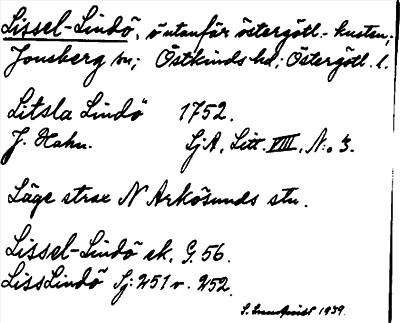 Lissel-Lindö, ö utanför östergötl.-kusten;
Jonsberg sn; Östkinds hd; Östergötl. l.
Litsla Lindö 1752.
J. Hahn. SjA, Litt. VIII, N:o 3.
Läge strax N Arkösunds stn.
Lissel-Lindö ek. G. 56.
LissLindö Sj: 251 v. 252.
1939.